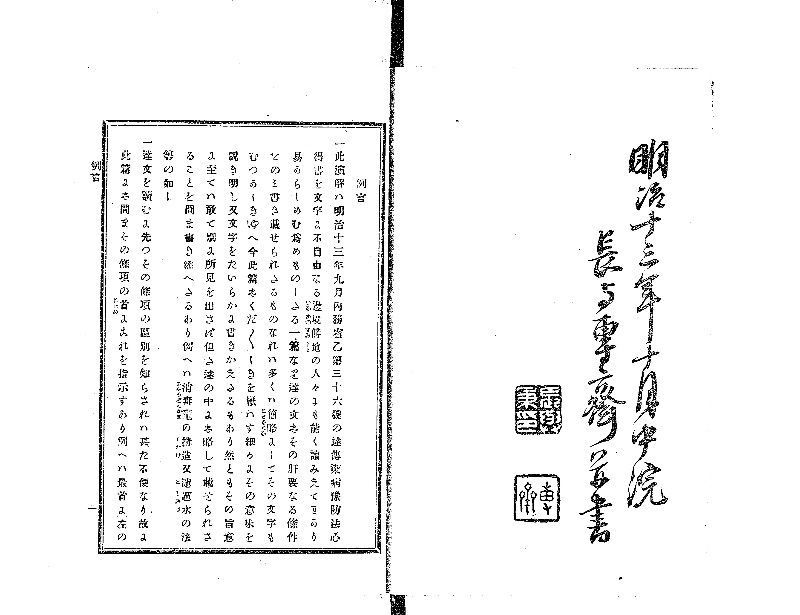 明治十三年十月中院
長与専斎并書
例言
一此演解ハ明治十三年九月内務省乙第三十六號の達傳染病豫防法心
得書を文字よ不自由なる邊境僻地の人々よも能く讀みえて曉り
易からしめむ爲めものしさる一篇なり達の文ハその肝要なる條件
をのミ書き載せられさるものなれハ多くハ簡略よしてその文字も
むつかしき゛ゆへ今此篇ハくだ〱しきを厭ハす細かよその意味を
説き明し又文字をたいらかよ書きかえさるもあり然ともその旨意
よ至てハ敢て別よ所見を出さぱ但さ達の中よハ略して載せられさ
ることを間ま書き添へさるあり例へハ消毒室の搆造又濾過水の法
等の如し
一達文を讀むよ先つその條項の區別を知らされハ甚た不便なり故よ
此篇よハ間まその條項の首よこれを指示すあり例へハ最首よ左の
例言
一